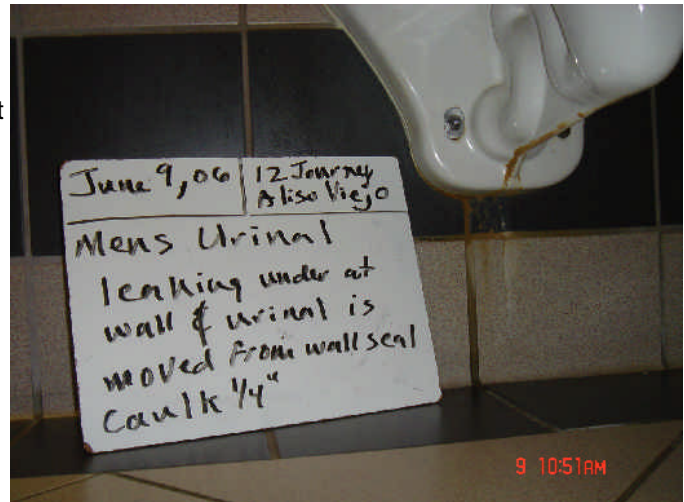 t
June 9, 06
12 Journey
Aliso Viejo
Mens Urinal
leaking under at
wall & urinal is
moved from wall seal
Caulk 1/4"
9 10:51AM